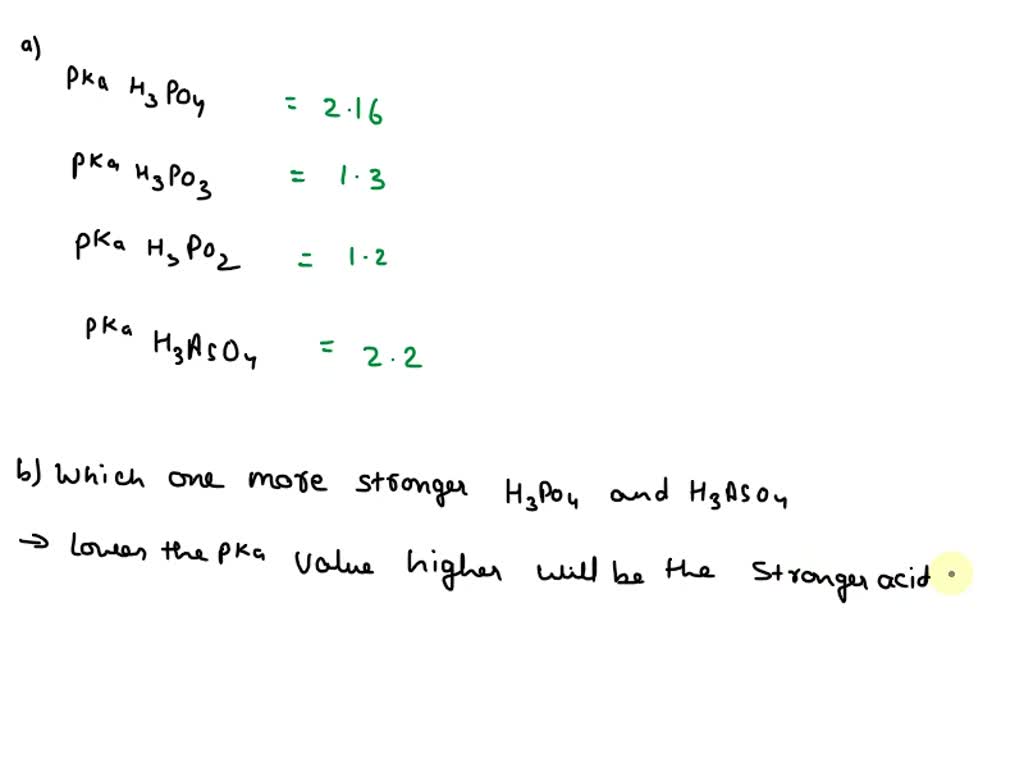 a)
pKa H₃PO₄ = 2.16
pKa H₃PO₃ = 1.3
pKa H₃PO₂ = 1.2
pKa H₃AsO₄ = 2.2
b) Which one more stronger H₃PO₄ and H₃ASO₄
→ Lower the pKa value higher will be the stronger acid